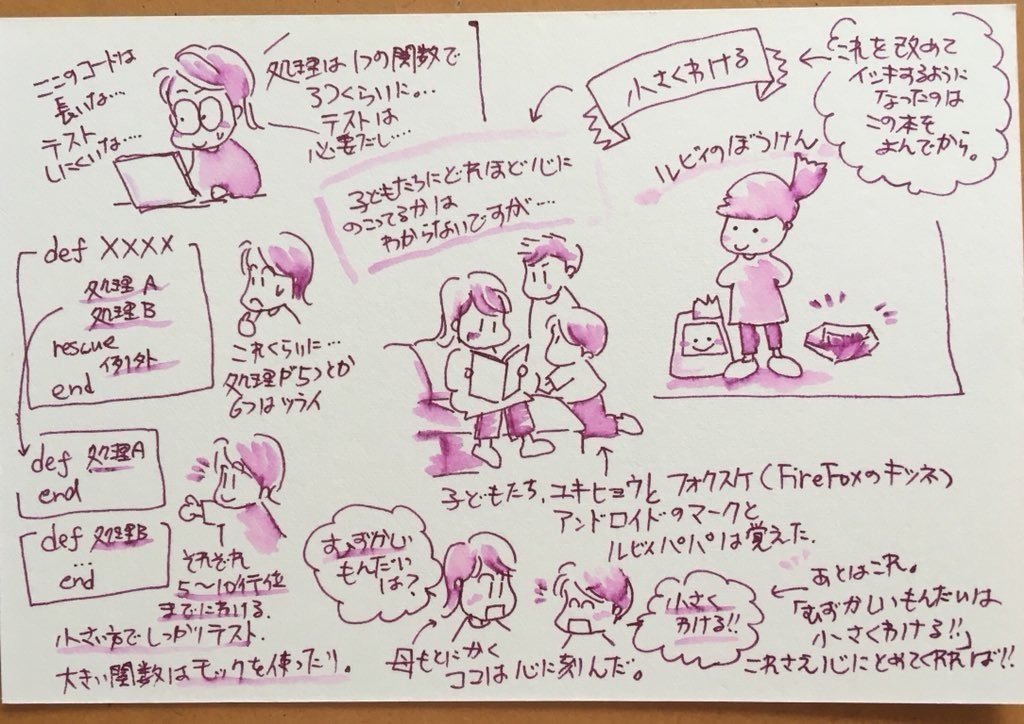 ここのコードは
長いな…
テスト
しにくいな…
処理は1つの関数で
3つくらいに…
テストは
必要だし…
小さくわける
これを改めて
イシキするように
なったのは
この本を
よんでから。
子どもたちにどれほど心に
のこってるかは
わからないですが…
ルビィのぼうけん
def XXXX
処理A
処理B
rescue
例外
end
これくらいに…
処理が5つとか
6つはツライ
def 処理A
end
def 処理B
…
end
それぞれ
5〜10行位
までにわける。
小さい方でしっかりテスト.
大きい関数はモックを使ったり。
子どもたち、ユキヒョウとフォクスケ(FireFoxのキツネ)
アンドロイドのマークと
ルビィパパは覚えた.
むずかしい
もんだい
は?
小さく
わける!!
母もとにかく
ココは心に刻んだ。
あとはこれ。
「むずかしいもんだいは
小さくわける!!」
これさえ心にとめてくれれば!!